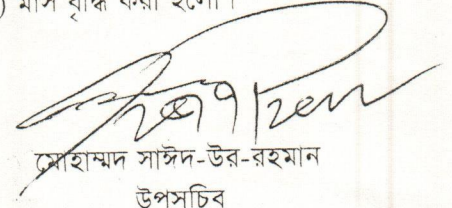 মাস বৃদ্ধি করা হলো।
মোহাম্মদ সাঈদ-উর-রহমান
উপসচিব